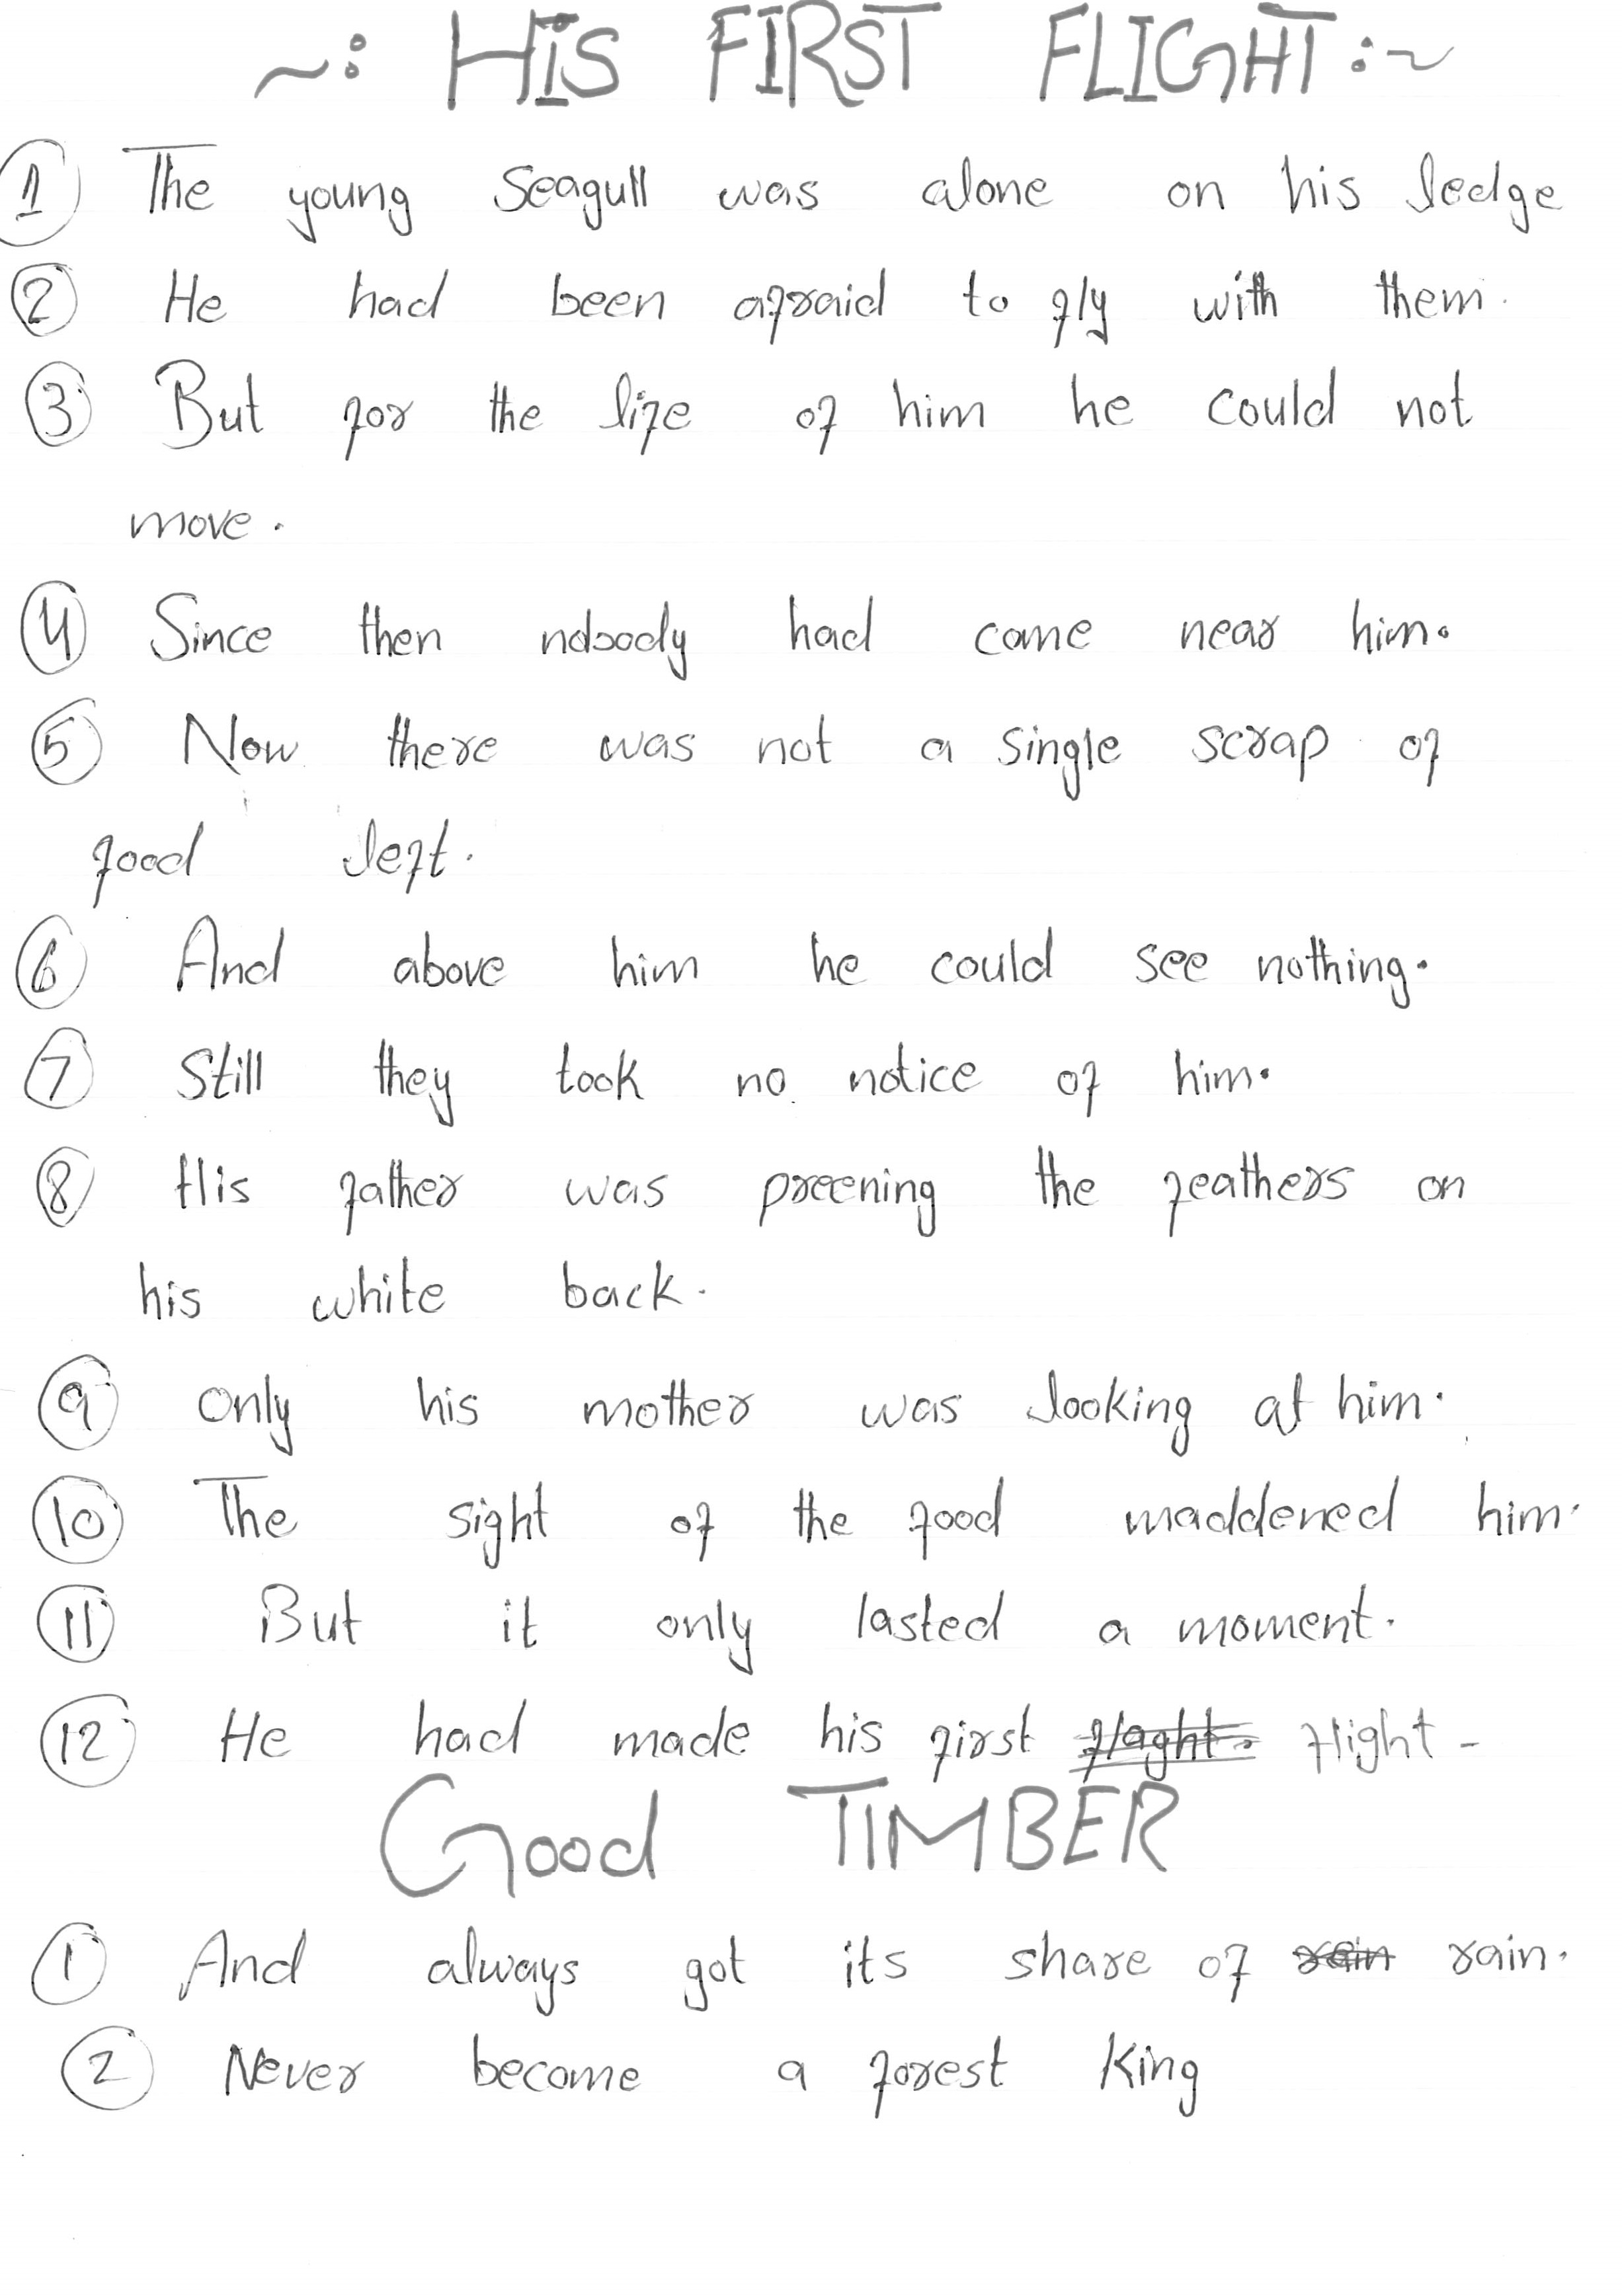 ~: HiS FIRST FLIGHT :~
1 The young Seagull was alone on his ledge
2 He had been afraid to fly with them.
3 But for the life of him he could not
move.
4 Since then nobody had come near him.
5 Now there was not a single scrap of
food left.
6 And above him he could see nothing.
7 Still they took no notice of him.
8 His father was preening the feathers on
his white back.
9 Only his mother was looking at him.
10 The sight of the food maddened him.
11 But it only lasted a moment.
12 He had made his first flaght. flight -
Good TIMBER
1 And always got its share of rain rain.
2 Never become a forest King